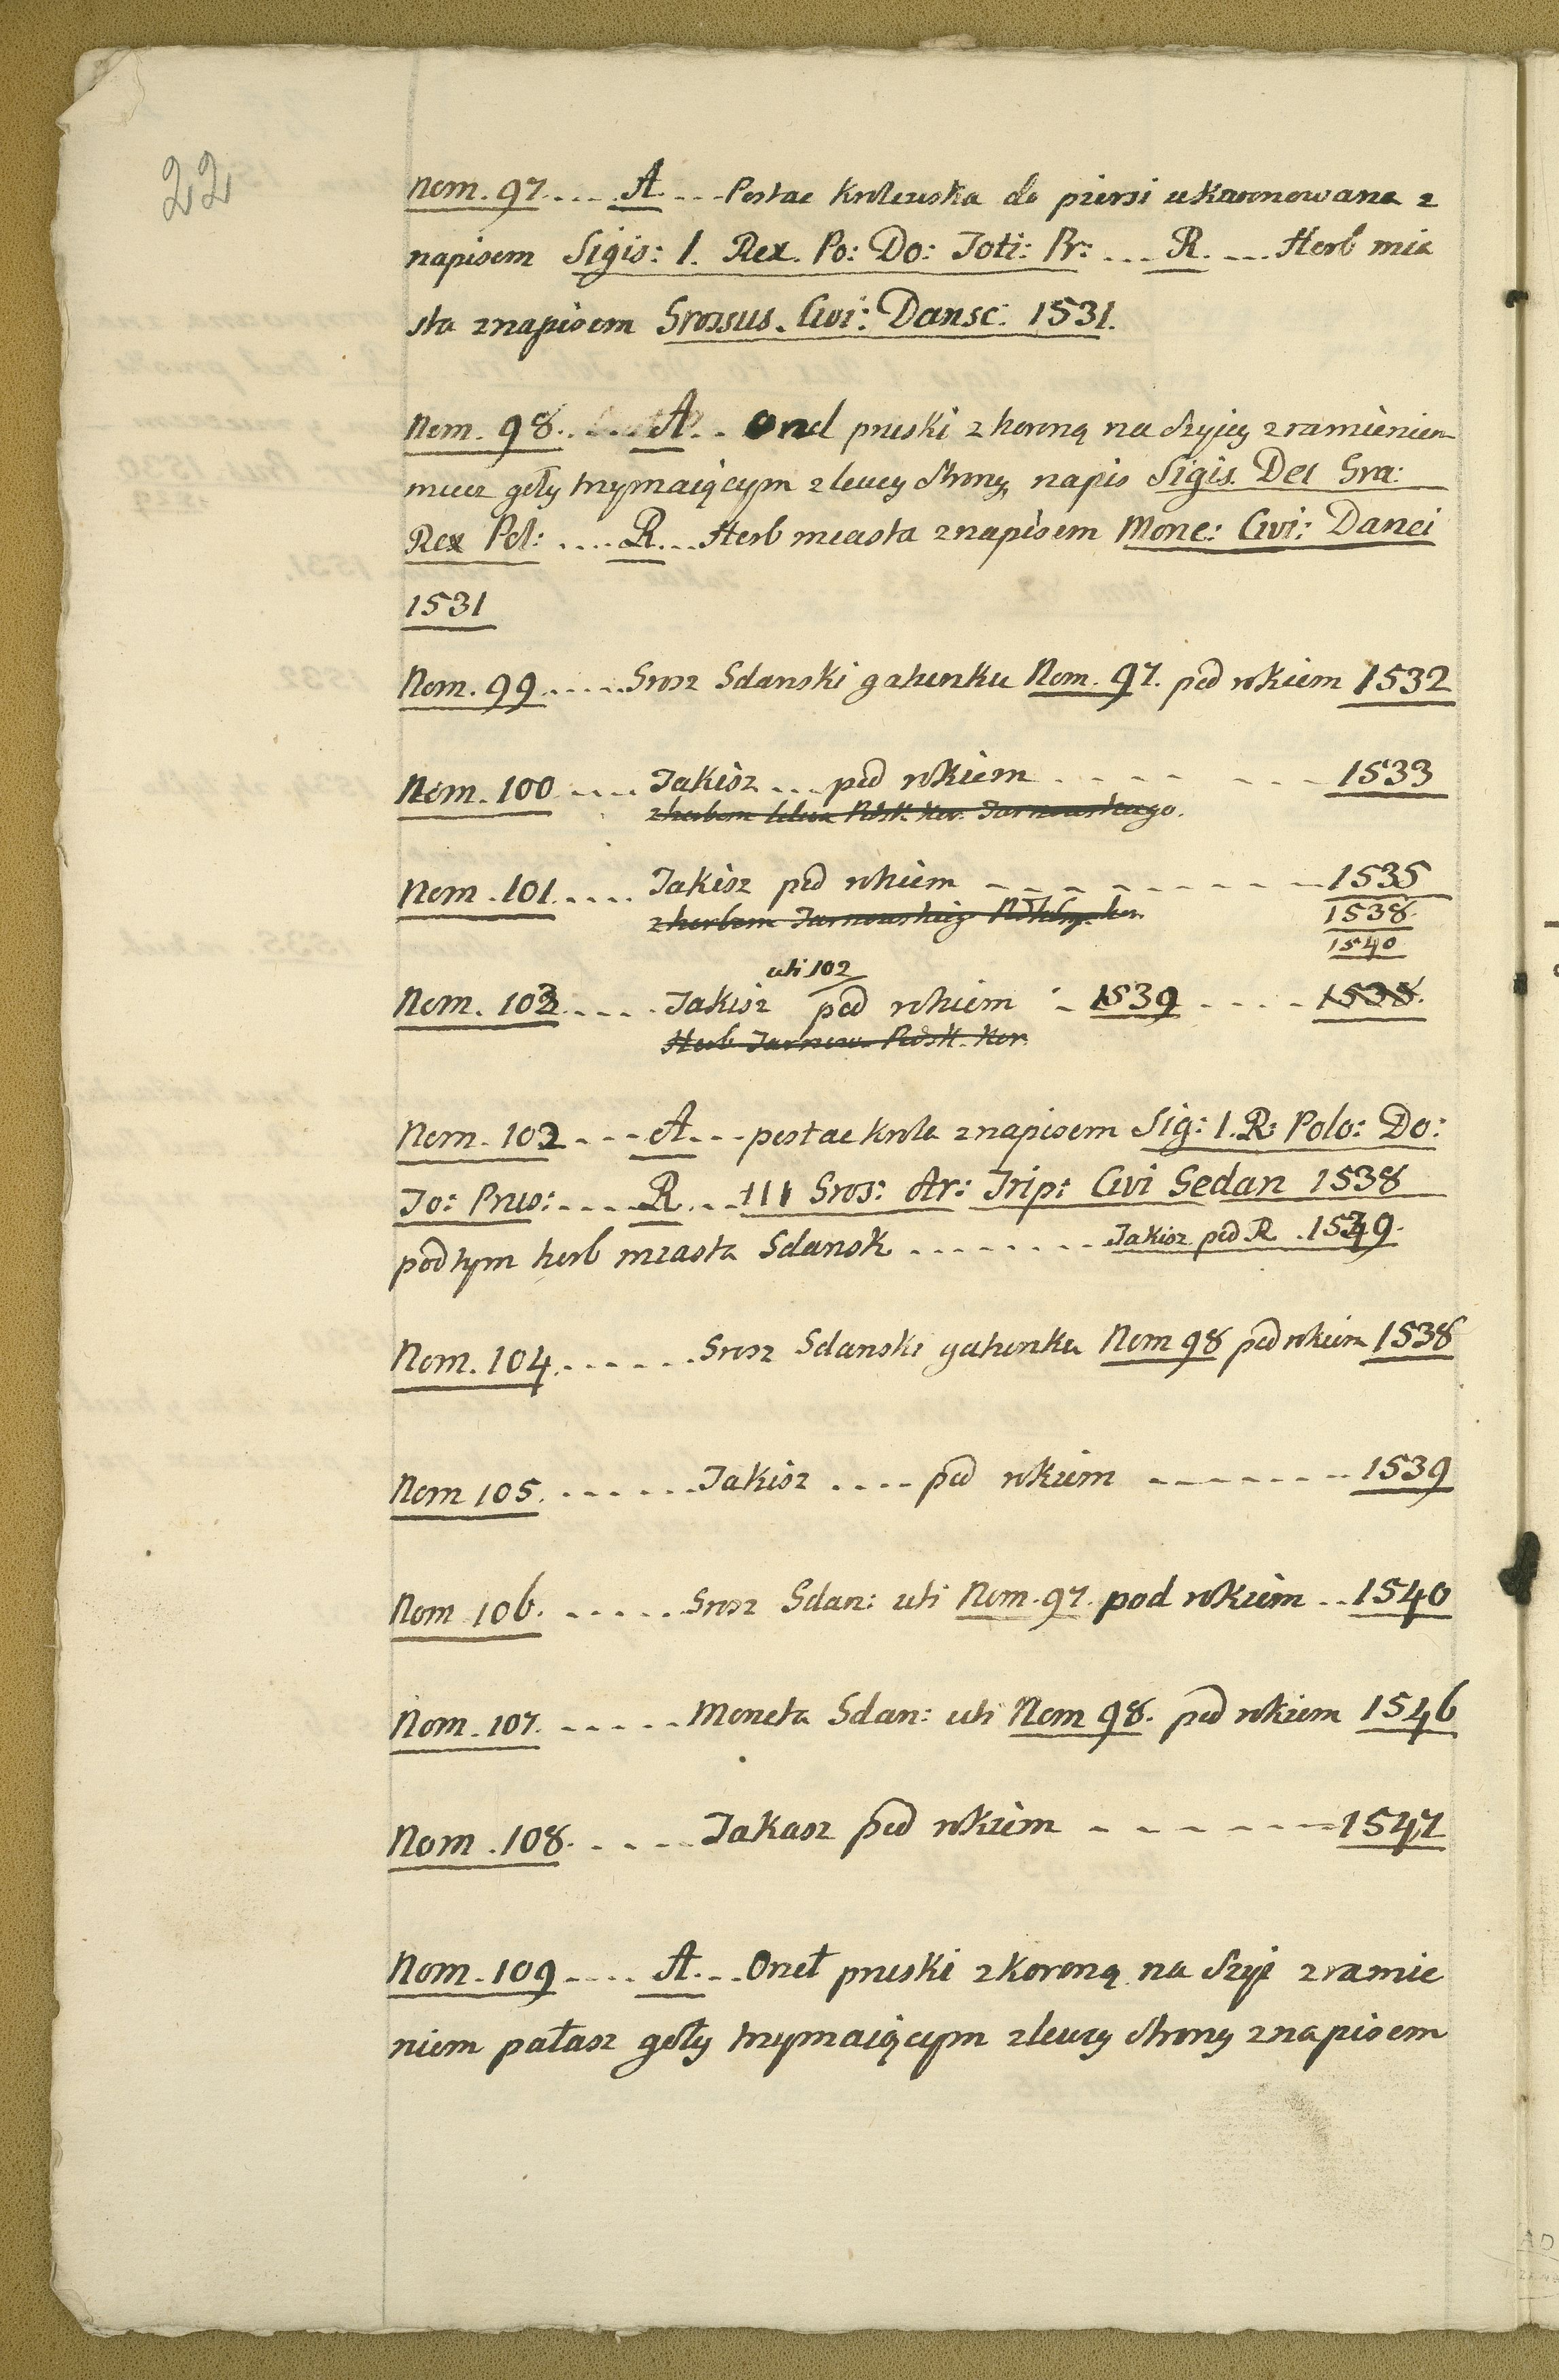 22
Nom. 97.... A ... Postac Krolewska do piersi ukaronowana z
napisem Sigis: 1. Rex. Po: Do: Toti: Pr: ... R. ... Herb mia
sta znapisem Grossus. Civi: Dansc: 1531.
Nom. 98. .... A. .. Orzel pruski z koroną na szyjey z ramieniem
miecz goły trzymaiącym z lewey strony napis Sigis. Dei Gra:
Rex Pol: .... R... Herb miasta znapisem Mone: Civi: Danci
1531
Nom. 99.....Grosz Gdanski gatunku Nom. 97. pod rokiem 1532
Nom. 100 .... Takisz ... pod rokiem . - - - - - 1533
z herbem Podsk. Kor. Tarnowskiego.
Nom. 101.... Takisz pod rokiem - - - - - - - - 1535
z herbem Tarnowskieg Kor.
1538.
1540
uti 102
Nom. 103..... Takisz pod rokiem - - 1539 - - - - 1538.
Herb Tarnow. Podsk. Kor.
Nom. 102....A...postac Krola znapisem Sig: 1. R: Polo: Do:
To: Prus:.....R...III Gros: Ar: Trip: Civi Gedan 1538
pod tym herb miasta Gdansk ........ Takisz pod R. 1539.
Nom. 104.......Grosz Gdanski gatunku Nom 98 pod rokiem 1538
Nom 105. ......Takisz .... pod rokiem - - - - - - 1539
Nom 106. .....Grosz Gdan: uti Nom. 97. pod rokiem .. 1540
Nom. 107. .....Moneta Gdan: uti Nom 98. pod rokiem 1546
Nom . 108. ....Takasz pod rokiem - - - - - - 1547
Nom. 109.... A...Orzeł pruski z koroną na szyi z ramie
niem pałasz goły trzymaiącym z lewey strony znapisem